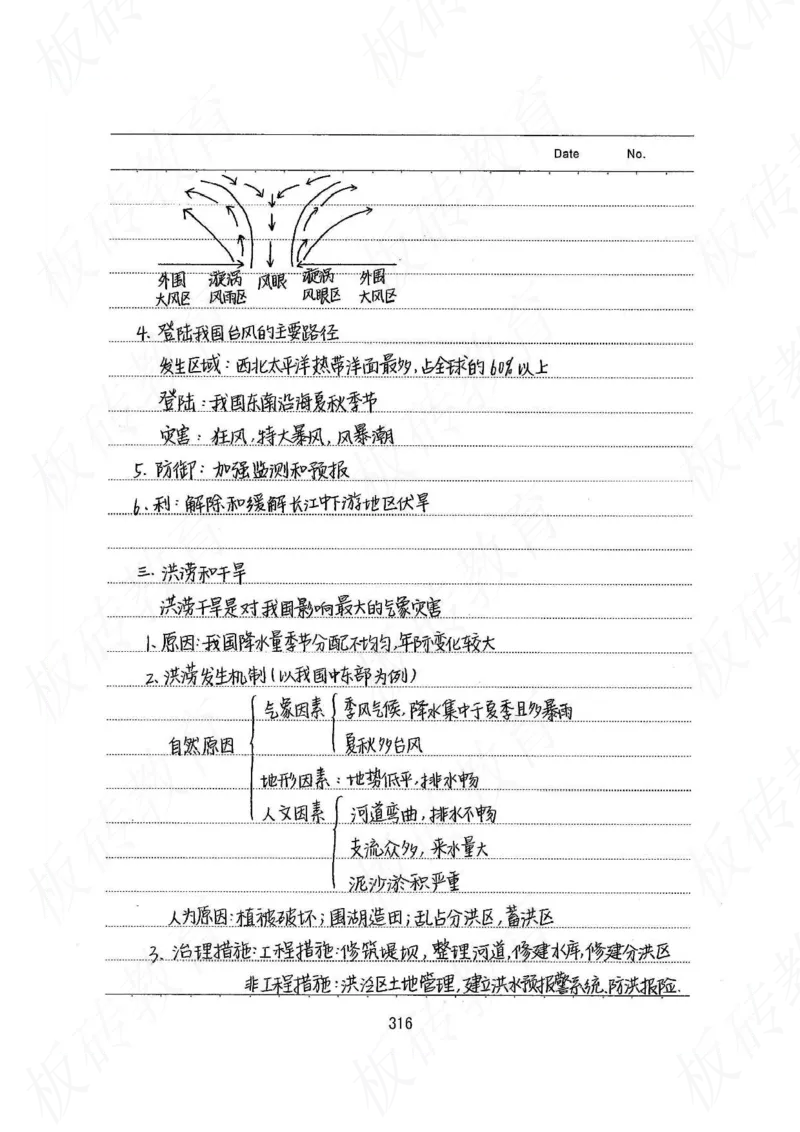 Date No.
外围 漩涡 风眼 漩涡 外围
大风区 风雨区 风眼区 大风区
4. 登陆我国台风的主要路径
发生区域：西北太平洋热带洋面最多，占全球的60%以上
登陆：我国东南沿海夏秋季节
灾害：狂风，特大暴风，风暴潮
5. 防御：加强监测和预报
6. 利：解除和缓解长江中下游地区伏旱
三. 洪涝和干旱
洪涝干旱是对我国影响最大的气象灾害
1. 原因：我国降水量季节分配不均匀，年际变化较大
2. 洪涝发生机制（以我国中东部为例）
气象因素 季风气候，降水集中于夏季且多暴雨
自然原因 夏秋多台风
地形因素：地势低平，排水畅
人文因素 河道弯曲，排水不畅
支流众多，来水量大
泥沙淤积严重
人为原因：植被破坏；围湖造田；乱占分洪区，蓄洪区
3. 治理措施：工程措施：修筑堤坝，整理河道，修建水库，修建分洪区
非工程措施：洪泛区土地管理，建立洪水预报警系统、防洪报险.
316
板砖教育